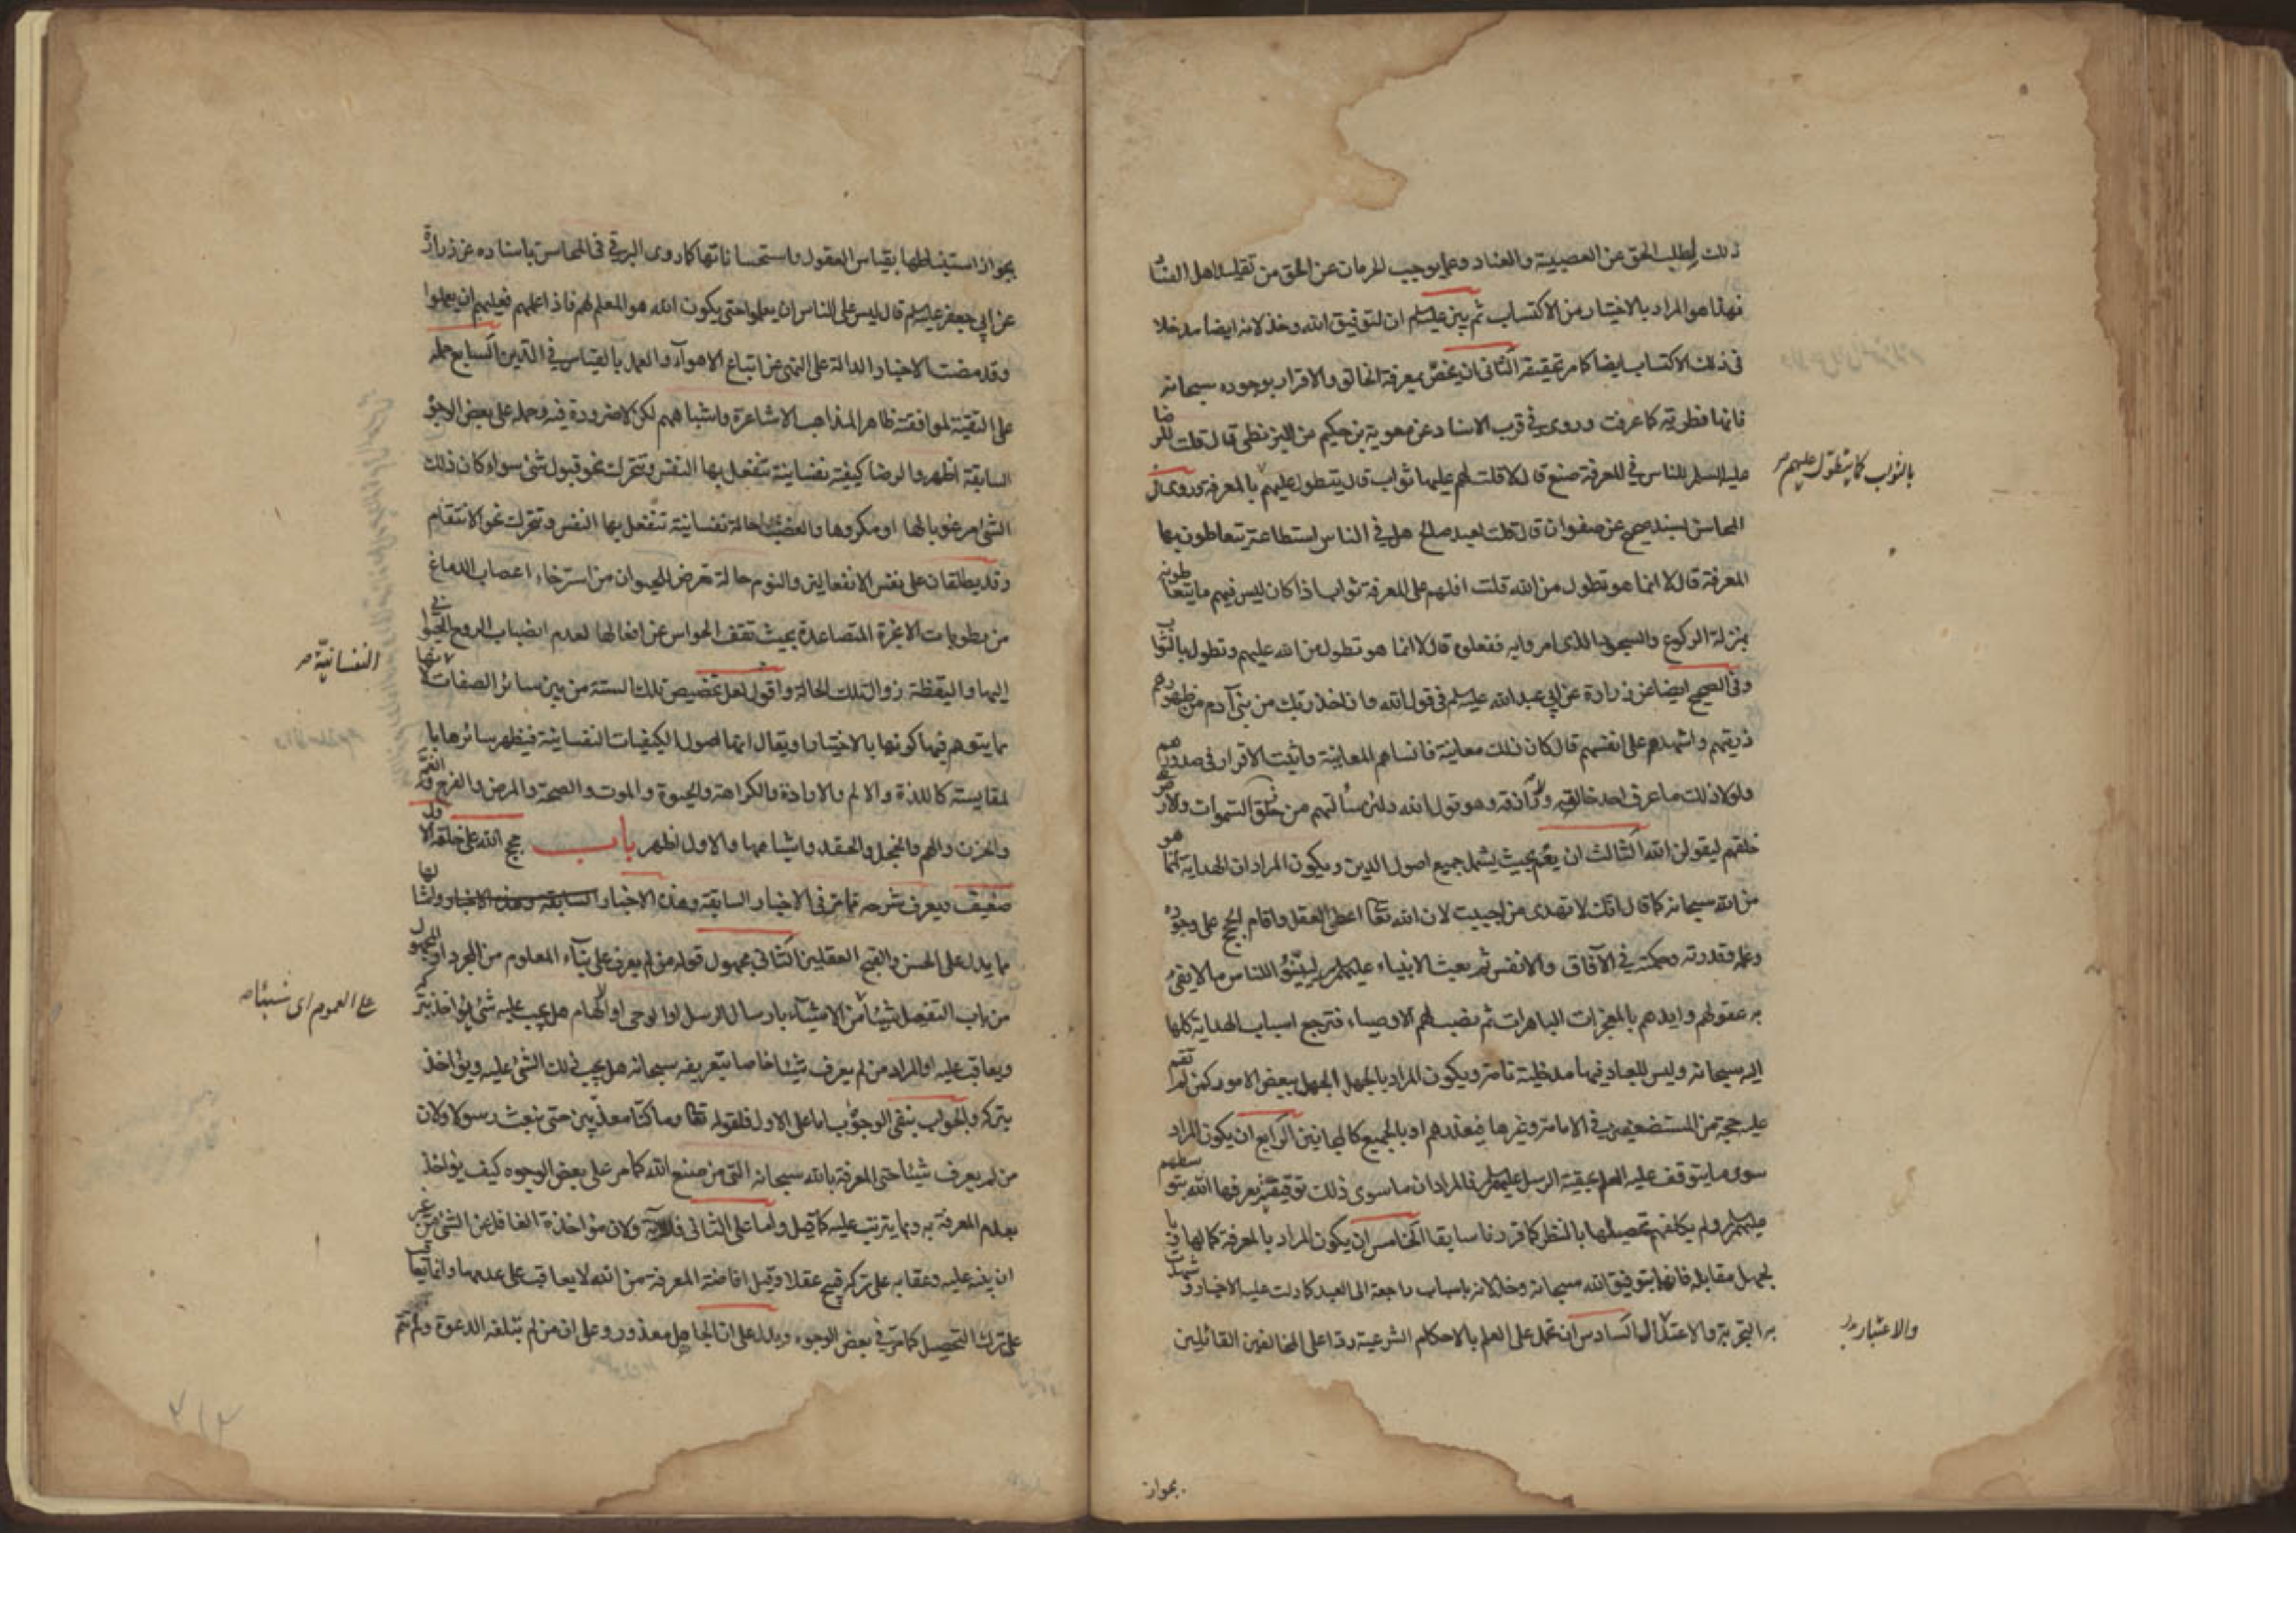 ذلك لطلب الحق عن العصبية والعناد وعما يوجب الحرمان عن الحق من تقليد اهل الفساد
فهذا هو المراد بالاختيار من الاكتساب ثم بين عليه السلم ان لتوفيق الله وخذلانه ايضا مدخلا
فى ذلك الاكتساب ايضا كما مر تحقيقه الثانى ان يخص بمعرفة الخالق والاقرار بوجوده سبحانه
فانها فطرية كما عرفت وروى فى قرب الاسناد عن معوية بن حكيم عن البزنطى قال قلت للرضا
عليه السلم للناس فى المعرفة صنع قال لا قلت لهم عليها ثواب قال يتطول عليهم بالمعرفة وروى فى
بالثواب كما يتطول عليهم صح
المحاسن بسند صحيح عن صفوان قال قلت لعبد صالح هل فى الناس استطاعة يتعاطون بها
المعرفة قال لا انما هو تطول من الله قلت افلهم على المعرفة ثواب اذا كان ليس فيهم ما يتعاطونه
بمنزلة الركوع والسجود الذى امروا به ففعلوه قال لا انما هو تطول من الله عليهم وتطول بالثواب
وفى الصحيح ايضا عن زرارة عن ابى عبد الله عليه السلم فى قول الله واذ اخذ ربك من بنى آدم من ظهورهم
ذريتهم واشهدهم على انفسهم قال كان ذلك معاينة فانساهم المعاينة واثبت الاقرار فى صدورهم
ولولا ذلك ما عرف احد خالقه ولا رازقه وهو قول الله ولئن سألتهم من خلق السموات والارض
خلقهم ليقولن الله الثالث ان يعم بحيث يشمل جميع اصول الدين ويكون المراد ان الهداية انما هو
من الله سبحانه كما قال انك لا تهدى من احببت لان الله تعا اعطى العقل واقام الحجج على وجوده
وعلمه وقدرته وحكمته فى الآفاق والانفس ثم بعث الانبياء عليهم السلم ليبينوا للناس ما لا يفى
به عقولهم وايدهم بالمعجزات الباهرات ثم نصب لهم الاوصياء فترجع اسباب الهداية كلها
اليه سبحانه وليس للعباد فيها مدخلية تامة ويكون المراد بالجهل الجهل ببعض الامور كمن لم تقم
عليه حجة من المستضعفين فى الامامة وغيرها فيعذرهم او بالجميع كالمجانين الرابع ان يكون المراد
سوى ما يتوقف عليه العلم بحقية الرسل عليهم السلم فالمراد ان ما سوى ذلك توقيفية يعرفها الله بتوسطهم
عليهم السلم ولم يكلفهم تحصيلها بالنظر كما قررنا سابقا الخامس ان يكون المراد بالمعرفة كمالها
لجهل مقابله فانها بتوفيق الله سبحانه وخذلانه باسباب راجعة الى العبد كما دلت عليه الاخبار وشهدت
به التجربة والاعتدال السادس ان تحمل على العلم بالاحكام الشرعية ردا على المخالفين القائلين
والاعتبار
بجواز
بجواز استنباطها بقياس العقول واستحساناتها كما روى البرقى فى المحاسن باسناده عن زرارة
عن ابى جعفر عليه السلم قال ليس على الناس ان يعلموا حتى يكون الله هو المعلم لهم فاذا اعلمهم فعليهم ان يعلموا
وقد مضت الاخبار الدالة على النهى عن اتباع الاهوآء والعمل بالقياس فى الدين السابع حمله
على التقية لموافقته ظاهر المذاهب الاشاعرة واشباههم لكن لا ضرورة فيه وحمله على بعض الوجوه
السابقة اظهر والرضا كيفية نفسانية تنفعل بها النفس وتتحرك نحو قبول شئ سواء كان ذلك
الشئ مرغوبا لها او مكروها والغضب حالة نفسانية تنفعل بها النفس وتتحرك نحو الانتقام
وقد يطلقان على نفس الانفعالين والنوم حالة تعرض للحيوان من استرخاء اعصاب الدماغ
من رطوبات الابخرة المتصاعدة بحيث تقف الحواس عن افعالها لعدم انصباب الروح الحيوانى
النفسانية صح
اليها واليقظة زوال تلك الحالة واقول لعل تخصيص تلك الستة من بين سائر الصفات لانها
مما يتوهم فيها كونها بالاختيار او يقال انها اصول الكيفيات النفسانية فيظهر سائرها با
لمقايسة كاللذة والالم والارادة والكراهة والحيوة والموت والصحة والمرض والفرح والغم
والحزن والهم والخجل والحقد واشباهها والاول اظهر باب حجج الله على خلقه الاول
ضعيف ويعرف شرحه مما مر فى الاخبار السابقة وهذه الاخبار السابقة وهذه الاخبار وامثالها
مما يدل على الحسن والقبح العقليين الثانى مجهول قوله من لم يعرف على بناء المعلوم من المجرد او المجهول
من باب التفعيل شيئا من الاشيآء بارسال الرسل او الوحى او الالهام هل يجب عليه شئ يؤاخذ بتركه
على العموم اى شيئا صح
ويعاقب عليه او المراد من لم يعرف شيئا خاصا بتعريفه سبحانه هل يجب ذلك الشئ عليه ويؤاخذ
بتركه والجواب بنفى الوجوب اما على الاول فلقوله تعا وما كنا معذبين حتى نبعث رسولا ولان
من لم يعرف شيئا حتى المعرفة بالله سبحانه التى من صنع الله كما مر على بعض الوجوه كيف يؤاخذ
بعدم المعرفة به وبما يترتب عليه كما قيل واما على الثانى فللآية ولان مؤاخذة الغافل عن الشئ من غير
ان ينبه عليه وعقابه على تركه قبيح عقلا وقيل افاضة المعرفة من الله لا يعاقب على عدمها وانما يعاقب
على ترك التحصيل كما مر فى بعض الوجوه ويدل على ان الجاهل معذور وعلى ان من لم تبلغه الدعوة ولم تتم